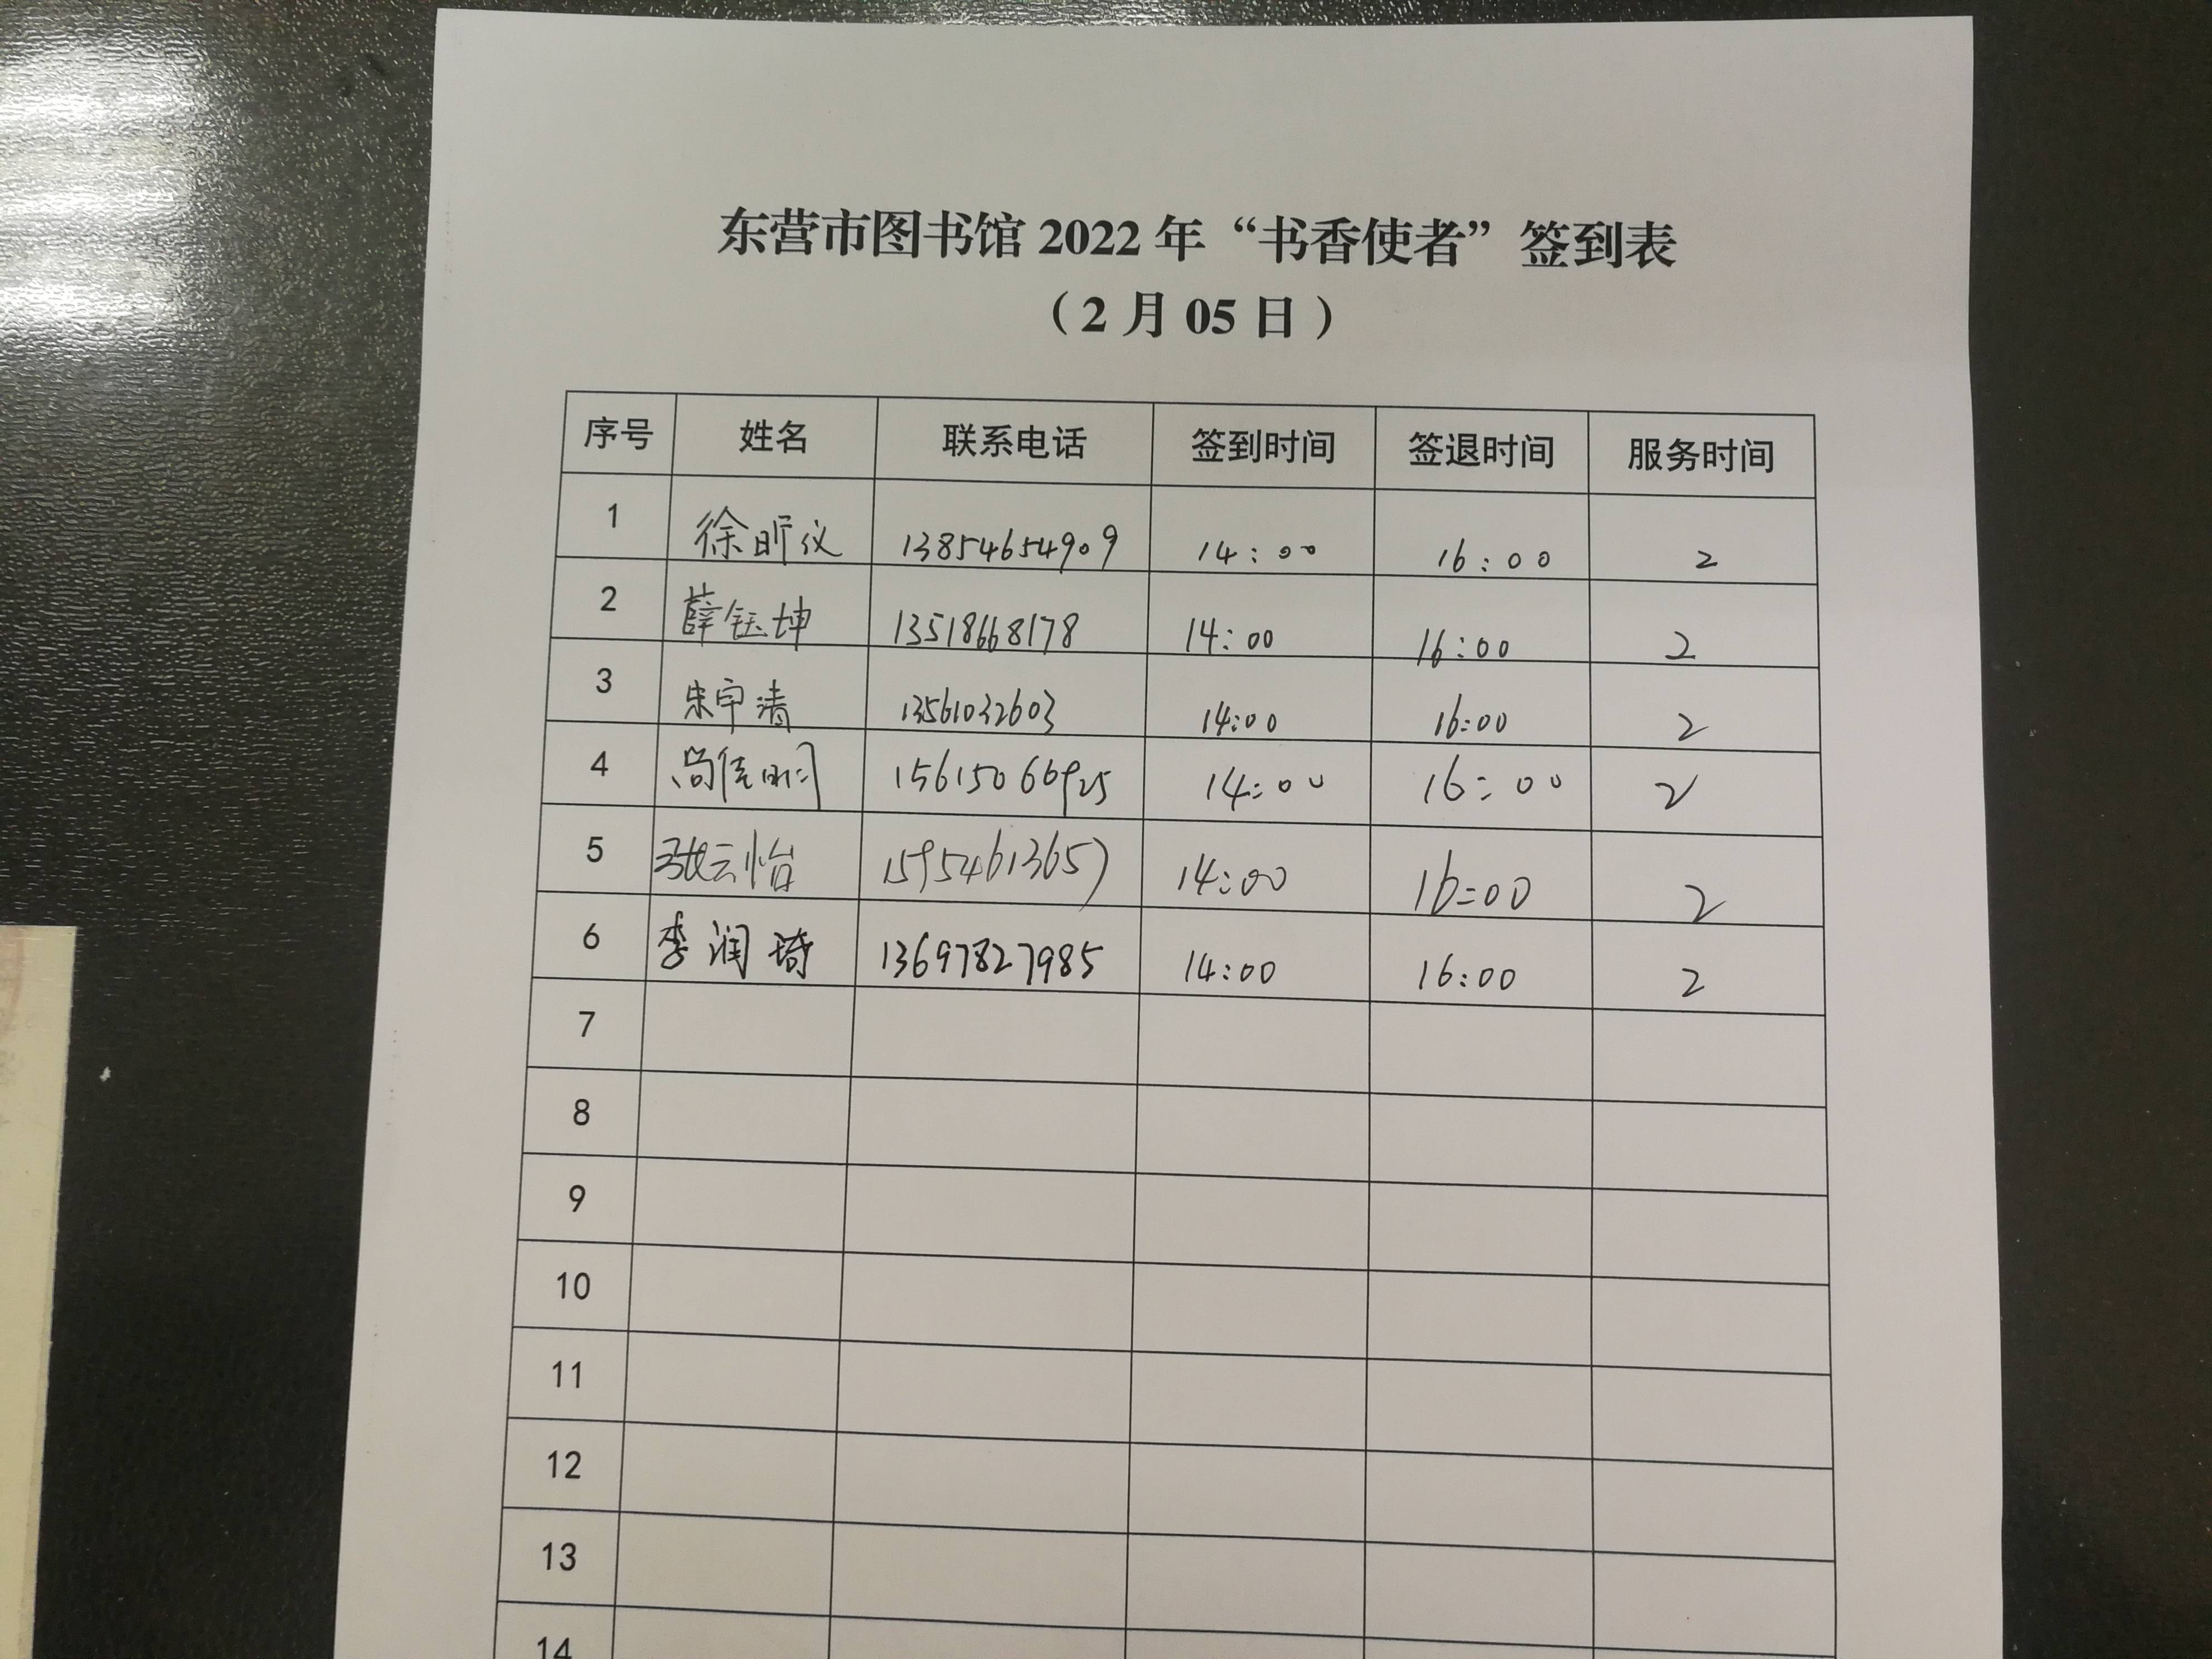 东营市图书馆 2022 年“书香使者”签到表
（2 月 05 日）
序号 姓名 联系电话 签到时间 签退时间 服务时间
1 徐昕仪 13854654909 14:00 16:00 2
2 薛钰坤 13518668178 14:00 16:00 2
3 朱宇清 13561032603 14:00 16:00 2
4 14:00 16:00 2
5 张云怡 15954613657 14:00 16:00 2
6 李润琦 13697827985 14:00 16:00 2
7
8
9
10
11
12
13
14